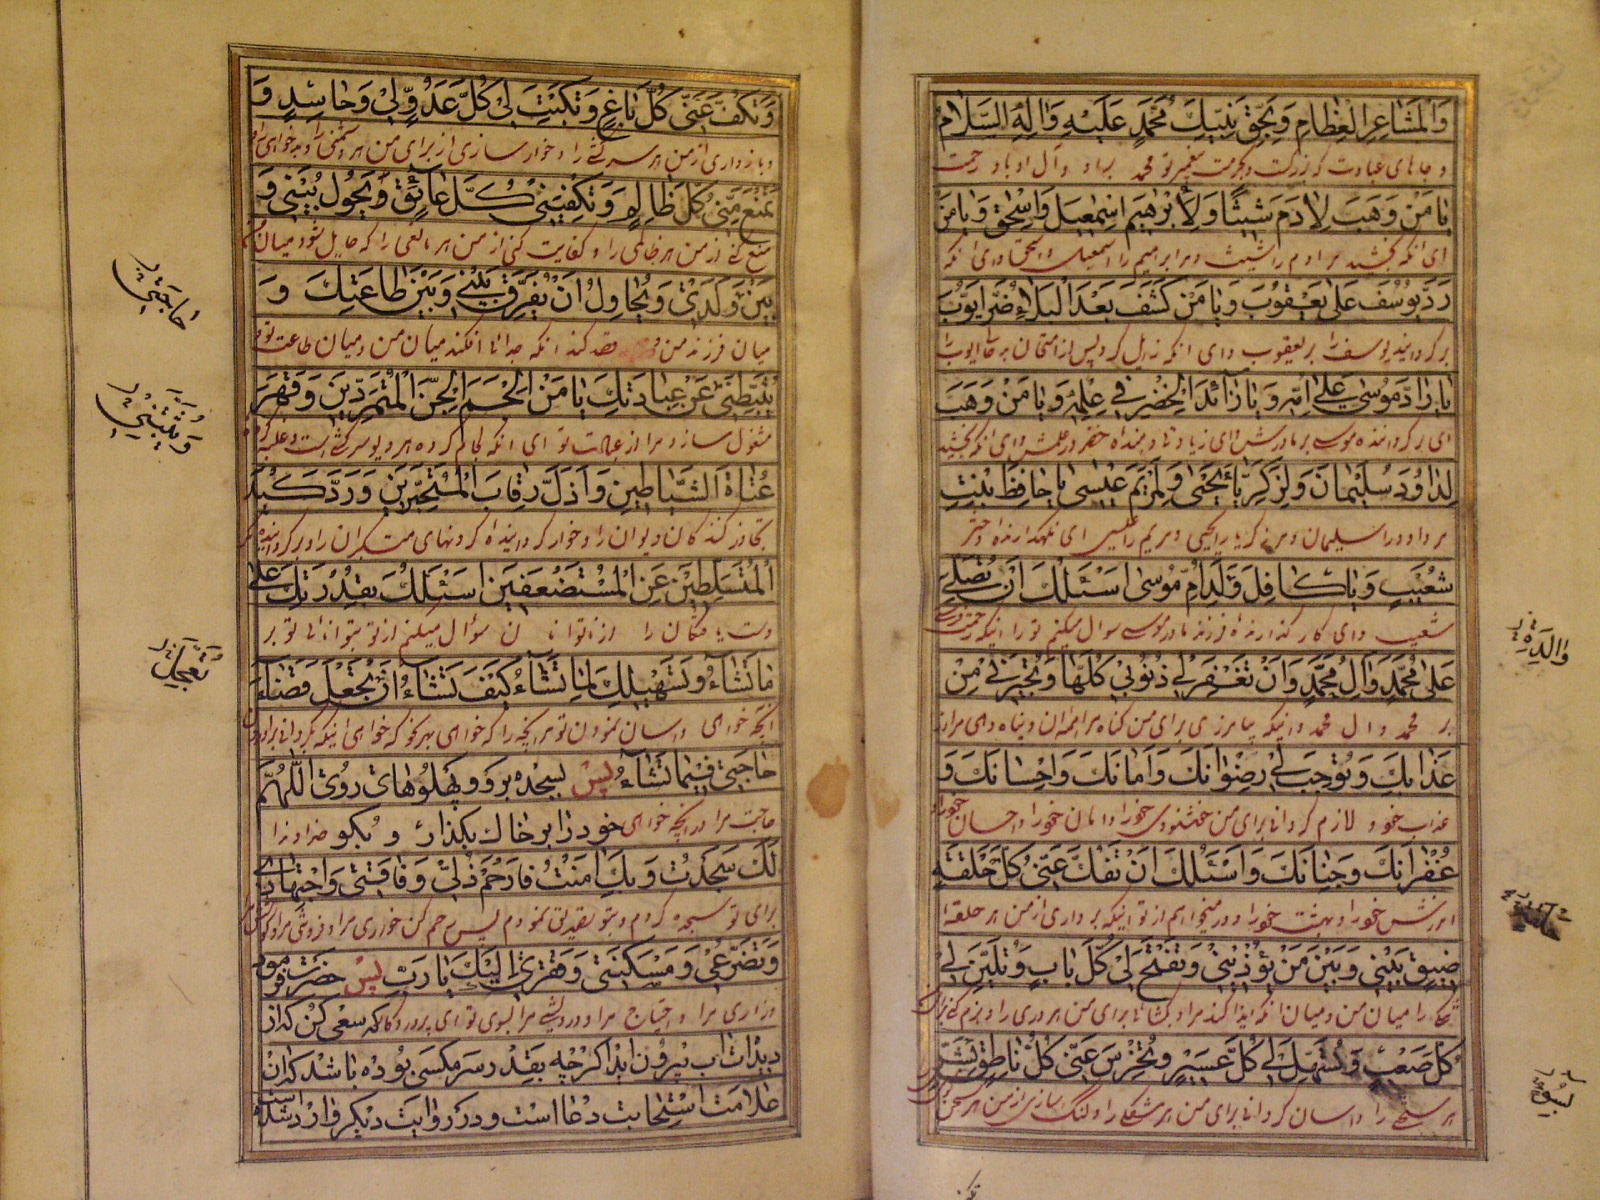 وَالْمَشَاعِرِ الْعِظَامِ وَبِحَقِّ نَبِيِّكَ مُحَمَّدٍ عَلَيْهِ وَآلِهِ السَّلَامُ
و جاهای عبادت که بزرکست و بحرمت پیغمبر تو محمد بر او و آل او باد رحمت
يَا مَنْ وَهَبَ لِآدَمَ شَيْثًا وَلِإِبْرٰهِيمَ اِسْمٰعِيلَ وَاِسْحٰقَ وَيَا مَنْ
ای آنکه بخشید مر آدم را شیث و مر ابراهیم را اسمعیل و اسحق و ای آنکه
رَدَّ يُوسُفَ عَلٰى يَعْقُوبَ وَيَا مَنْ كَشَفَ بَعْدَ الْبَلَاءِ ضُرَّ اَيُّوبَ
بر کردانید یوسف را بر یعقوب و ای آنکه زایل کرد پس از امتحان
يَا رَادَّ مُوسٰى عَلٰى اُمِّهِ وَيَا زَائِدَ الْخِضْرِ فِي عِلْمِهِ وَيَا مَنْ وَهَبَ
ای بر کرداننده موسی بر مادرش و ای زیاد کننده خضر در علمش و ای آنکه بخشید
لِدَاوُدَ سُلَيْمَانَ وَلِزَكَرِيَّا يَحْيٰى وَلِمَرْيَمَ عِيسٰى يَا حَافِظَ بِنْتِ
مر داود را سلیمان و مر زکریا را یحیی و مریم را عیسی ای نگهدارنده دختر
شُعَيْبٍ وَيَا كَافِلَ وَلَدِ اُمِّ مُوسٰى اَسْئَلُكَ اَنْ تُصَلِّيَ
شعیب و ای کار گذارنده فرزند مادر موسی سوال میکنم تو را اینکه رحمت فرستی
عَلٰى مُحَمَّدٍ وَآلِ مُحَمَّدٍ وَاَنْ تَغْفِرَ لِي ذُنُوبِي كُلَّهَا وَتُجِيرَنِي مِنْ
بر محمد و آل محمد و اینکه بیامرزی برای من کناه مرا همه آن و پناه دهی مرا از
عَذَابِكَ وَتُوجِبَ لِي رِضْوَانَكَ وَاَمَانَكَ وَاِحْسَانَكَ وَ
عذاب خود و لازم کردانی برای من خشنودی خود را و امان خود را و احسان خود را و
غُفْرَانَكَ وَجِنَانَكَ وَاَسْئَلُكَ اَنْ تَفُكَّ عَنِّي كُلَّ حَلْقَةٍ
آمرزش خود را و بهشت خود را و میخواهم از تو اینکه برداری از من هر حلقه
ضِيقٍ بَيْنِي وَبَيْنَ مَنْ يُؤْذِينِي وَتَفْتَحَ لِي كُلَّ بَابٍ وَتُلَيِّنَ لِي
تنک را میان من و میان آنکه ایذا کند مرا و بکشائی برای من هر دری را و نرم کنی برای
كُلَّ صَعْبٍ وَتُسَهِّلَ لِي كُلَّ عَسِيرٍ وَتُخْرِسَ عَنِّي كُلَّ نَاطِقٍ بِشَرٍّ
هر سختی را و آسان کردانی برای من هر مشکلی را و لنک سازی از من هر
وَالِدَةِ
بِسُوءٍ
وَتَكُفَّ عَنِّي كُلَّ بَاغٍ وَتَكْبِتَ لِي كُلَّ عَدُوٍّ لِي وَحَاسِدٍ وَ
و بازداری از من هر سرکشی را و خوار سازی از برای من هر دشمنی را و بدخواهی را و
تَمْنَعَ مِنِّي كُلَّ ظَالِمٍ وَتَكْفِيَنِي كُلَّ عَائِقٍ وَيَحُولُ بَيْنِي وَ
منع کنی از من هر ظالمی را و کفایت کنی از من هر مانعی را که حایل شود میان من
بَيْنَ وَلَدِي وَيُحَاوِلُ اَنْ يُفَرِّقَ بَيْنِي وَبَيْنَ طَاعَتِكَ وَ
میان فرزند من و قصد کند آنکه جدائی افکند میان من و میان طاعت تو و
يُثَبِّطَنِي عَنْ عِبَادَتِكَ يَا مَنْ اَلْجَمَ الْجِنَّ الْمُتَمَرِّدِينَ وَقَهَرَ
مشغول سازد مرا از عبادت تو ای آنکه لجام کرده هر دیو سرکش است و غلبه کرده
عُتَاةَ الشَّيَاطِينِ وَاَذَلَّ رِقَابَ الْمُتَجَبِّرِينَ وَرَدَّ كَيْدَ
تجاوز کنندکان دیوان را و خوار کرداننده کردنهای متکبران را و بر کرداننده مکر
الْمُتَسَلِّطِينَ عَنِ الْمُسْتَضْعَفِينَ اَسْئَلُكَ بِقُدْرَتِكَ عَلٰى
دست یافتکان را از ناتوانان سؤال میکنم از تو بتوانائی تو بر
مَا تَشَاءُ وَتَسْهِيلِكَ لِمَا تَشَاءُ كَيْفَ تَشَاءُ اَنْ تَجْعَلَ قَضَاءَ
آنچه خواهی و آسان نمودن تو هر آنچه را که خواهی بهر نحو که خواهی اینکه بکردانی
حَاجَتِي فِيمَا تَشَاءُ پس بسجده برو و پهلوهای روی اللّٰهُمَّ
حاجت مرا در آنچه خواهی خود را بر خاك بكذار و بكو خداوندا
لَكَ سَجَدْتُ وَبِكَ آمَنْتُ فَارْحَمْ ذُلِّي وَفَاقَتِي وَاجْتِهَادِي
برای تو سجده کردم و بتو تصدیق نمودم پس رحم کن خواری مرا و فروتنی مرا و کوشش مرا
وَتَضَرُّعِي وَمَسْكَنَتِي وَفَقْرِي اِلَيْكَ يَا رَبِّ پس حضرت فرمود
و زاری مرا و احتیاج مرا و درویشی مرا بسوی تو ای پروردکار که سعی کن که از
دیدات آب بیرون اید اکرچه بقدر سر مکسی بوده باشد که آن
علامت استجابت دعا است و در روایت دیکر وارد شده است
حَاجَتِي
وَيُثَبِّتَنِي
تَعْجِيلَ